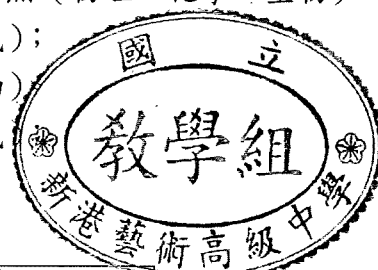 國立
教學組
新港藝術高級中學